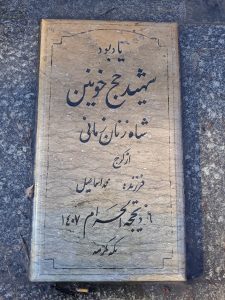 یادبود
شهید حج خونین
شاه زنان زمانی
از کرج
فرزند محمد اسماعیل
۶ ذیحجة الحرام ۱۴۰۷
مکه مکرمه